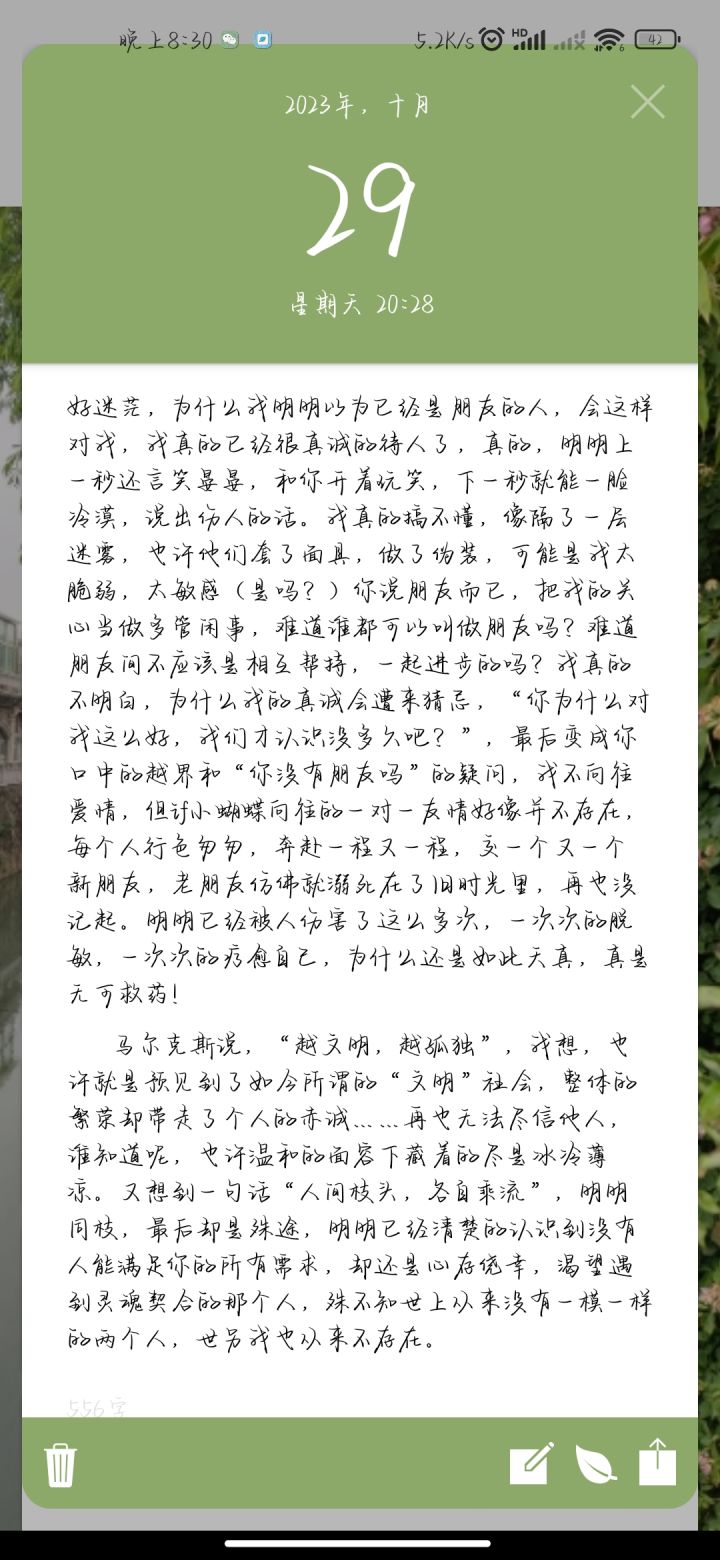 晚上8:30
5.2K/s HD 6 42
2023年，十月
29
星期天 20:28
好迷茫，为什么我明明以为已经是朋友的人，会这样
对我，我真的已经很真诚的待人了，真的，明明上
一秒还言笑晏晏，和你开着玩笑，下一秒就能一脸
冷漠，说出伤人的话。我真的搞不懂，像隔了一层
迷雾，也许他们套了面具，做了伪装，可能是我太
脆弱，太敏感（是吗？）你说朋友而已，把我的关
心当做多管闲事，难道谁都可以叫做朋友吗？难道
朋友间不应该是相互帮持，一起进步的吗？我真的
不明白，为什么我的真诚会遭来猜忌，“你为什么对
我这么好，我们才认识没多久吧？”，最后变成你
口中的越界和“你没有朋友吗”的疑问，我不向往
爱情，但isf小蝴蝶向往的一对一友情好像并不存在，
每个人行色匆匆，奔赴一程又一程，交一个又一个
新朋友，老朋友仿佛就溺死在了旧时光里，再也没
记起。明明已经被人伤害了这么多次，一次次的脱
敏，一次次的疗愈自己，为什么还是如此天真，真是
无可救药！
马尔克斯说，“越文明，越孤独”，我想，也
许就是预见到了如今所谓的“文明”社会，整体的
繁荣却带走了个人的赤诚……再也无法尽信他人，
谁知道呢，也许温和的面容下藏着的尽是冰冷薄
凉。又想到一句话“人间枝头，各自乘流”，明明
同枝，最后却是殊途，明明已经清楚的认识到没有
人能满足你的所有需求，却还是心存侥幸，渴望遇
到灵魂契合的那个人，殊不知世上从来没有一模一样
的两个人，世另我也从来不存在。
556字